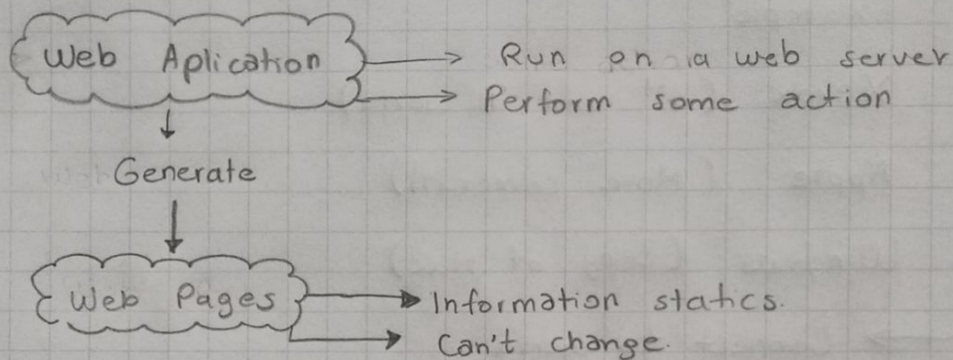 Web Aplication
Run on a web server
Perform some action
Generate
Web Pages
Information statics.
Can't change.